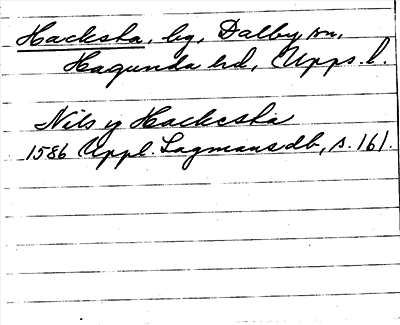 Hacksha, by, Dalby sn,
Hagunda hd, Upps. l.
Nils y Hackesha
1586 Uppl. Lagmansdb, s. 161.